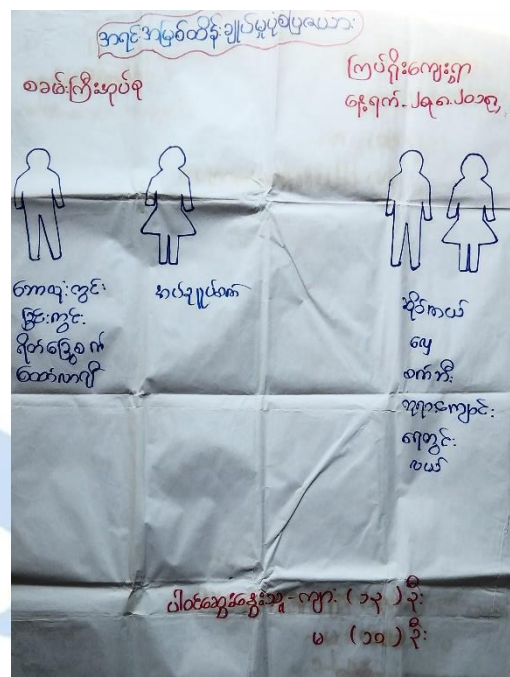 အရင်းအမြစ်ထိန်းချုပ်မှုပုံစံပြဇယား
စခမ်းကြီးအုပ်စု
ကြပ်ရိုးကျေးရွာ
နေ့ရက်
ဘောလုံးကွင်း
ခြင်းကွင်း
ရိတ်ခြွေစက်
ထော်လာဂျီ
အပ်ချုပ်စက်
ဆိုင်ကယ်
လှေ
စက်ဘီး
ဘုရားကျောင်း
ရေတွင်း
လယ်
ပါဝင်ဆွေးနွေးသူ - ကျား (၁၃) ဦး
မ (၁၀) ဦး